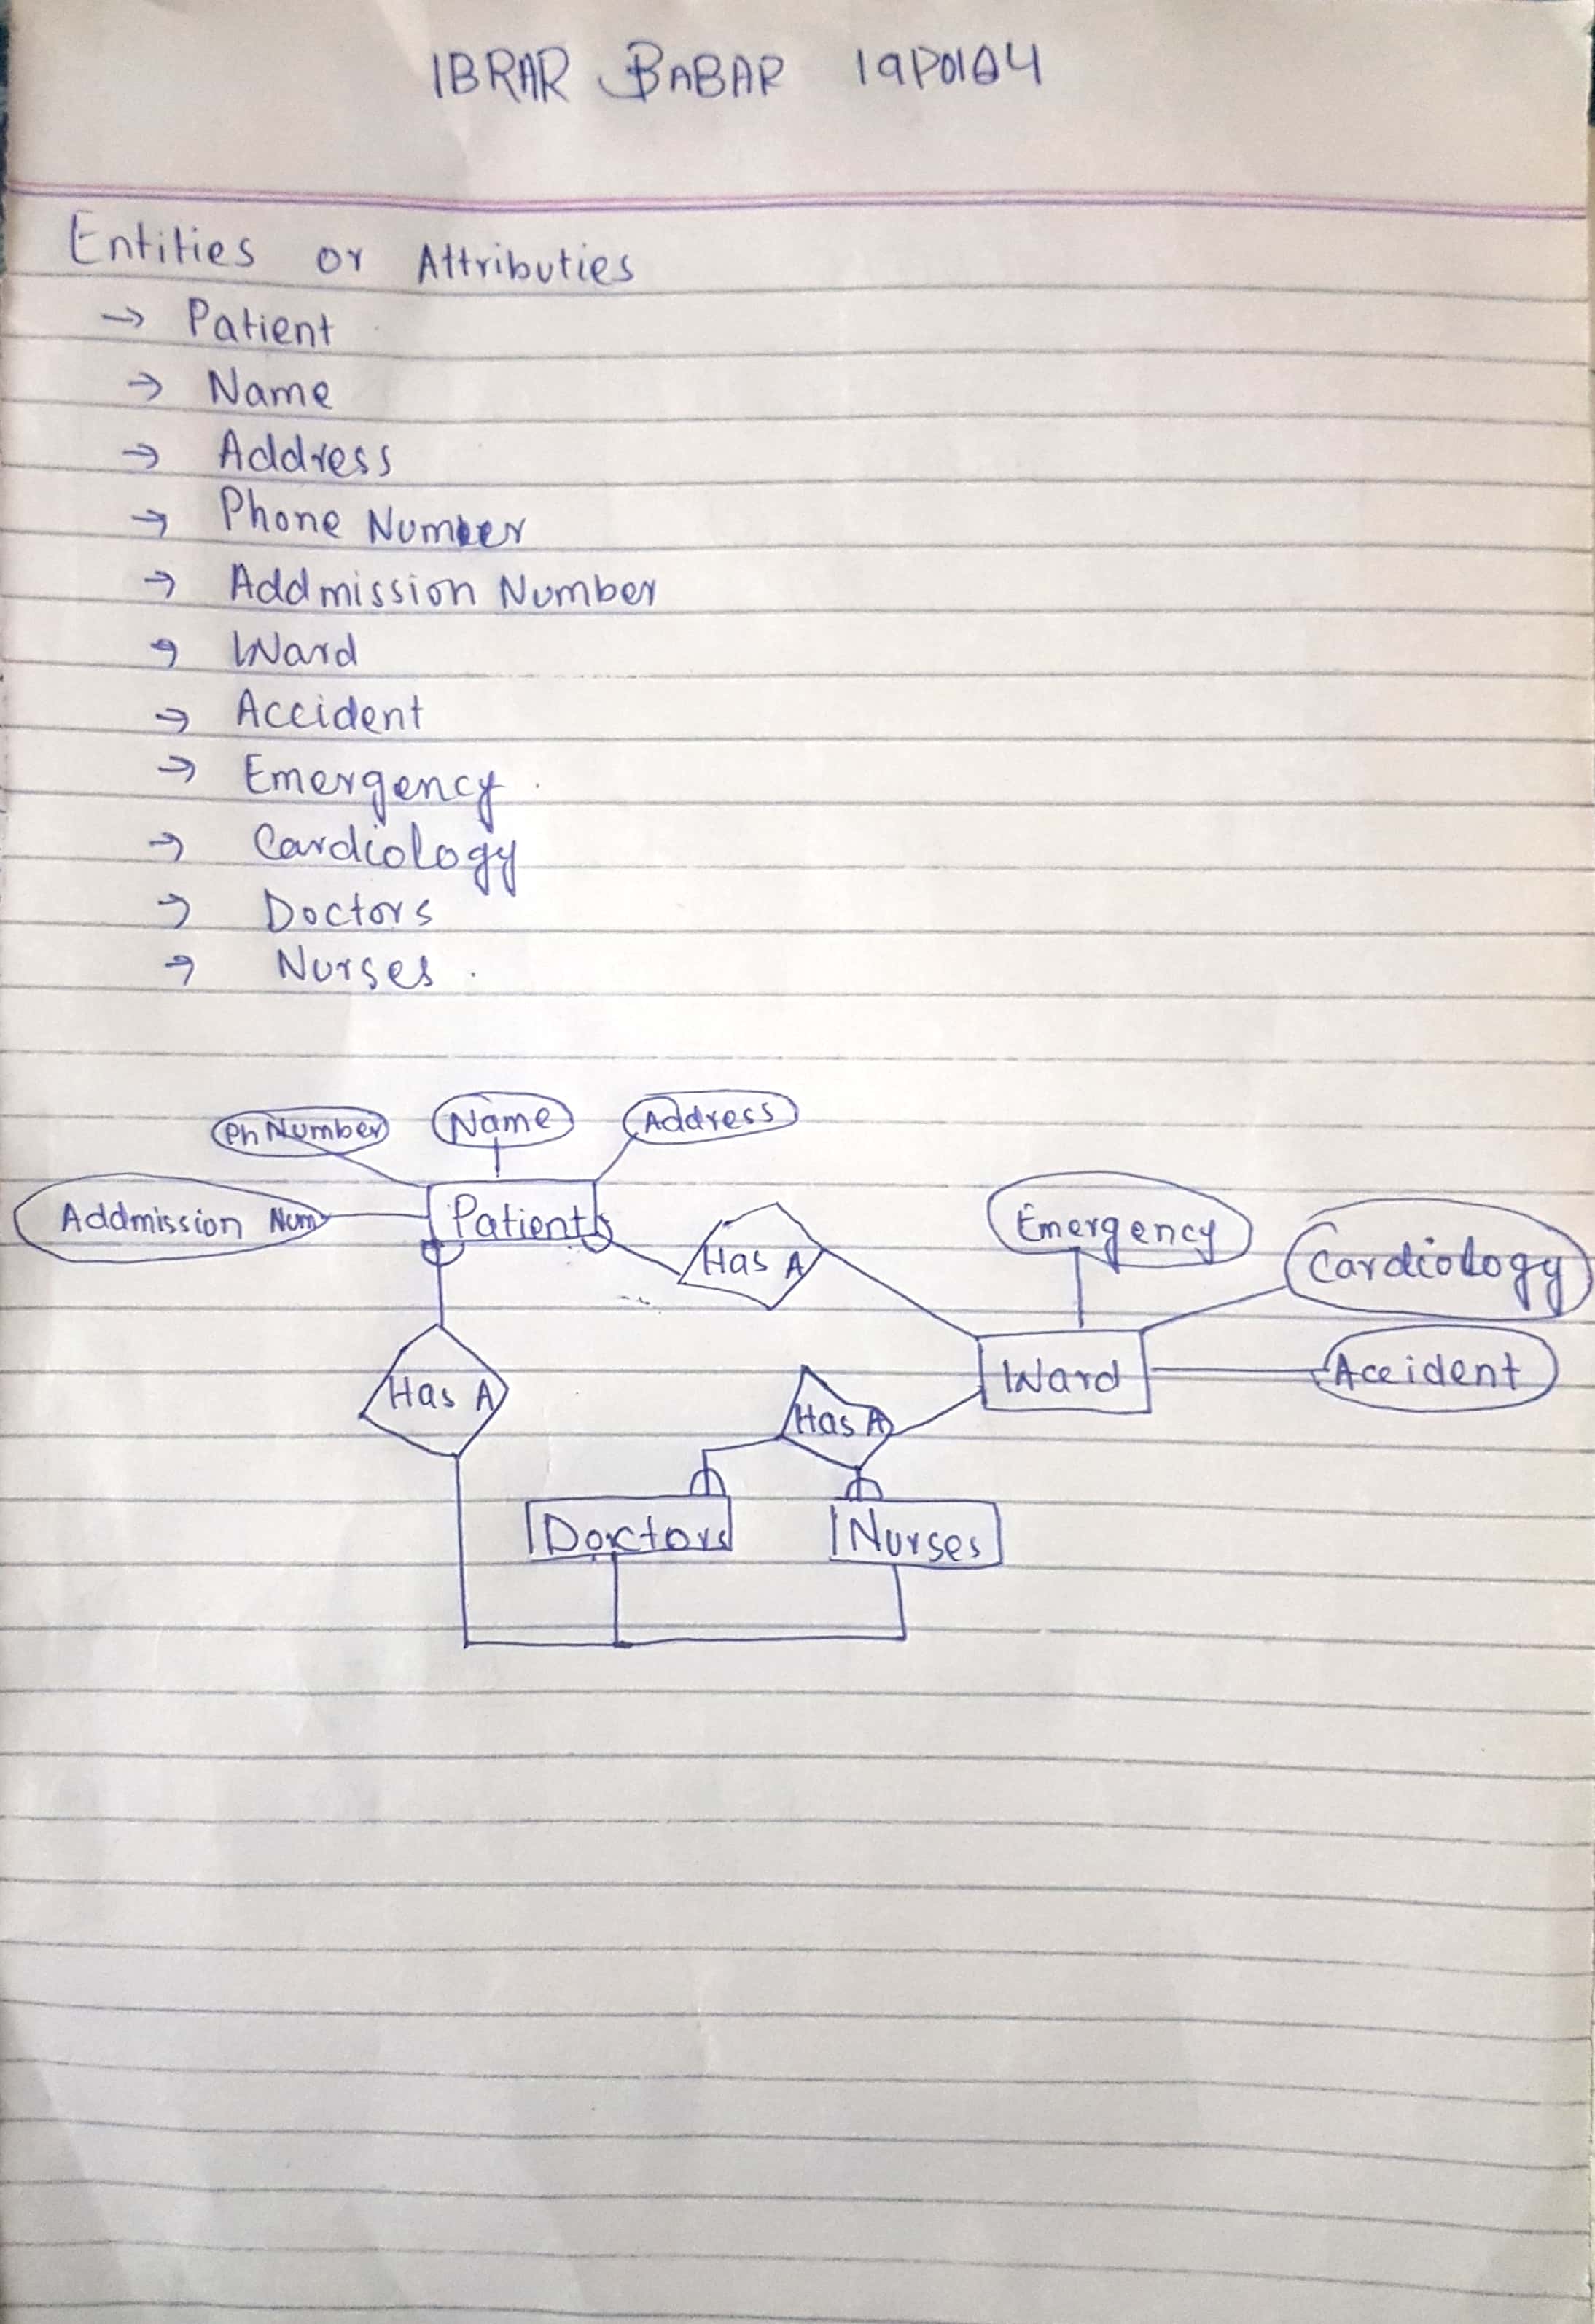 IBRAR BABAR 19P0104
Entities or Attributies
→ Patient
→ Name
→ Address
→ Phone Number
→ Addmission Number
→ Ward
→ Accident
→ Emergency
→ Cardiology
→ Doctors
→ Nurses
Ph Number Name Address
Addmission Num Patient Has A Emergency Cardiology
Has A Has A Ward Accident
Doctors Nurses